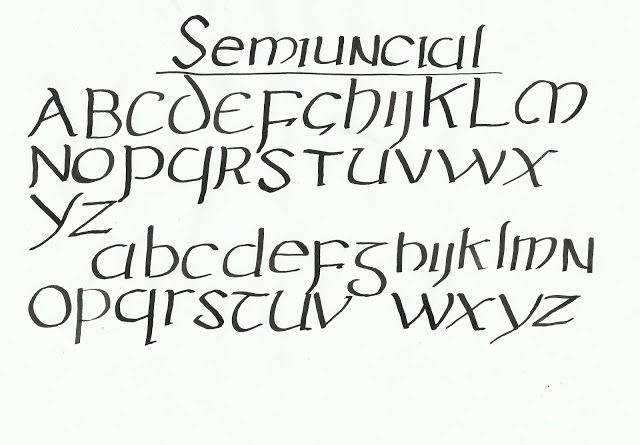 Semiuncial
ABCDEFGHIJKLM
NOPQRSTUVWX
YZ
abcdefghijklmn
opqrstuv wxyz